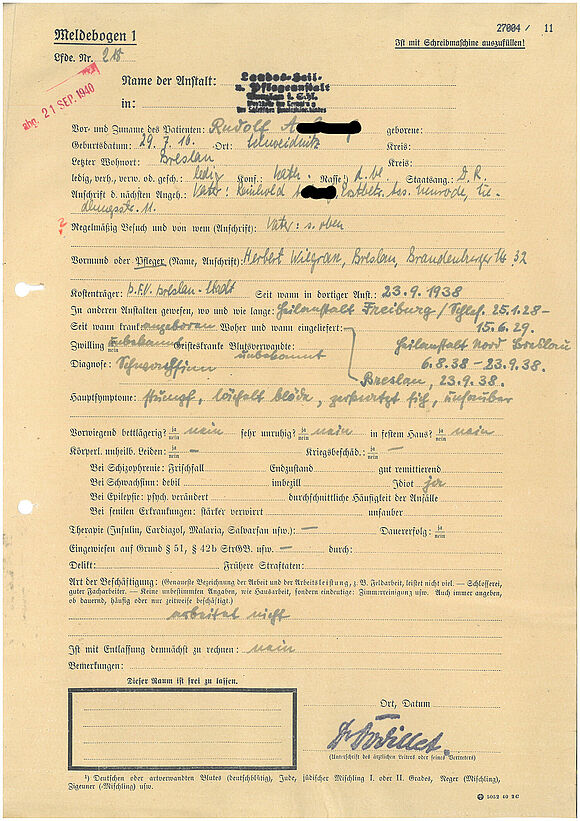 27004 / 11
Meldebogen 1
Ist mit Schreibmaschine auszufüllen!
Lfde. Nr.
abg. 21 SEP. 1940
Name der Anstalt: Landes-Heil-
u. Pflegeanstalt
in:
Vor- und Zuname des Patienten: Rudolf A geborene:
Geburtsdatum: 29. 7. 16. Ort: Schweidnitz Kreis:
Letzter Wohnort: Breslau Kreis:
ledig, verh., verw. od. gesch.: ledig Konf.: kath. Rasse¹) d. bl. Staatsang.: D. R.
Anschrift d. nächsten Angeh.: Vater: Reinhold
11.
? Regelmäßig Besuch und von wem (Anschrift): Vater: s. oben
Vormund oder Pfleger (Name, Anschrift): Herbert Breslau, Brandenburger Str. 32
Kostenträger: Breslau-Stadt Seit wann in dortiger Anst.: 23.9.1938
In anderen Anstalten gewesen, wo und wie lange: Heilanstalt Freiburg/Schles. 25.1.28–
Seit wann krank: angeboren Woher und wann eingeliefert: 15.6.29.
Zwilling unbekannt Geisteskranke Blutsverwandte: unbekannt Heilanstalt Nord Breslau
Diagnose: Schwachsinn 6.8.38 – 23.9.38.
Breslau, 23.9.38.
Hauptsymptome: stumpf, lächelt blöde, zerkratzt sich, unsauber
Vorwiegend bettlägerig? ja nein nein sehr unruhig? ja nein nein in festem Haus? ja nein nein
Körperl. unheilb. Leiden: ja nein – Kriegsbeschäd.: ja nein –
Bei Schizophrenie: Frischfall Endzustand gut remittierend
Bei Schwachsinn: debil imbezill Idiot ja
Bei Epilepsie: psych. verändert durchschnittliche Häufigkeit der Anfälle
Bei senilen Erkrankungen: stärker verwirrt unsauber
Therapie (Insulin, Cardiazol, Malaria, Salvarsan usw.): – Dauererfolg: ja nein
Eingewiesen auf Grund § 51, § 42b StrGB. usw. – durch:
Delikt: Frühere Straftaten:
Art der Beschäftigung: (Genaueste Bezeichnung der Arbeit und der Arbeitsleistung, z. B. Feldarbeit, leistet nicht viel. — Schlosserei,
guter Facharbeiter. — Keine unbestimmten Angaben, wie Hausarbeit, sondern eindeutige: Zimmerreinigung usw. Auch immer angeben,
ob dauernd, häufig oder nur zeitweise beschäftigt.)
arbeitet nicht
Ist mit Entlassung demnächst zu rechnen: nein
Bemerkungen:
Dieser Raum ist frei zu lassen.
Ort, Datum
(Unterschrift des ärztlichen Leiters oder seines Vertreters)
¹) Deutschen oder artverwandten Blutes (deutschblütig), Jude, jüdischer Mischling I. oder II. Grades, Neger (Mischling),
Zigeuner (-Mischling) usw.
5052 40 2C